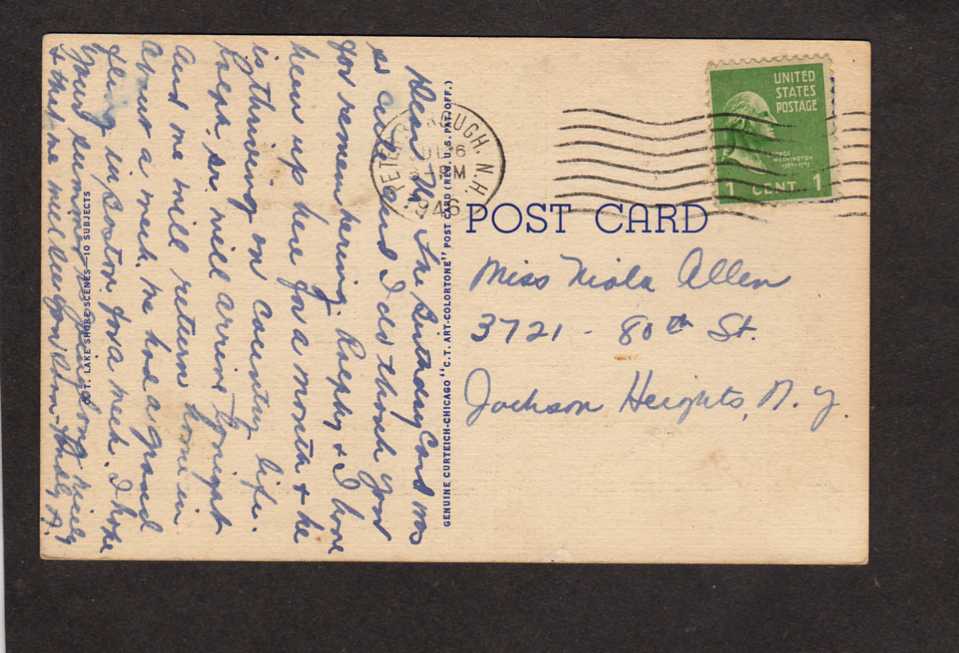 Dear Ni, The birthday card was
so cute and I do thank you
for remembering. Ralphy & I have
been up here for a month & he
is thriving on country life.
Ralph, Sr. will arrive tonight
and we will return home in
about a week. We had a grand
fling in Boston for a week. I hope
your summer is going along nicely
& that we will see you soon -
C.T. LAKE SHORE SCENES—10 SUBJECTS
GENUINE CURTEICH-CHICAGO "C.T. ART-COLORTONE" POST CARD (REG. U.S. PAT. OFF.)
PETERBOROUGH, N.H.
6
PM
1946
UNITED
STATES
POSTAGE
WASHINGTON
1 CENT 1
POST CARD
Miss Niola Allen
3721 - 80th St.
Jackson Heights, N.Y.